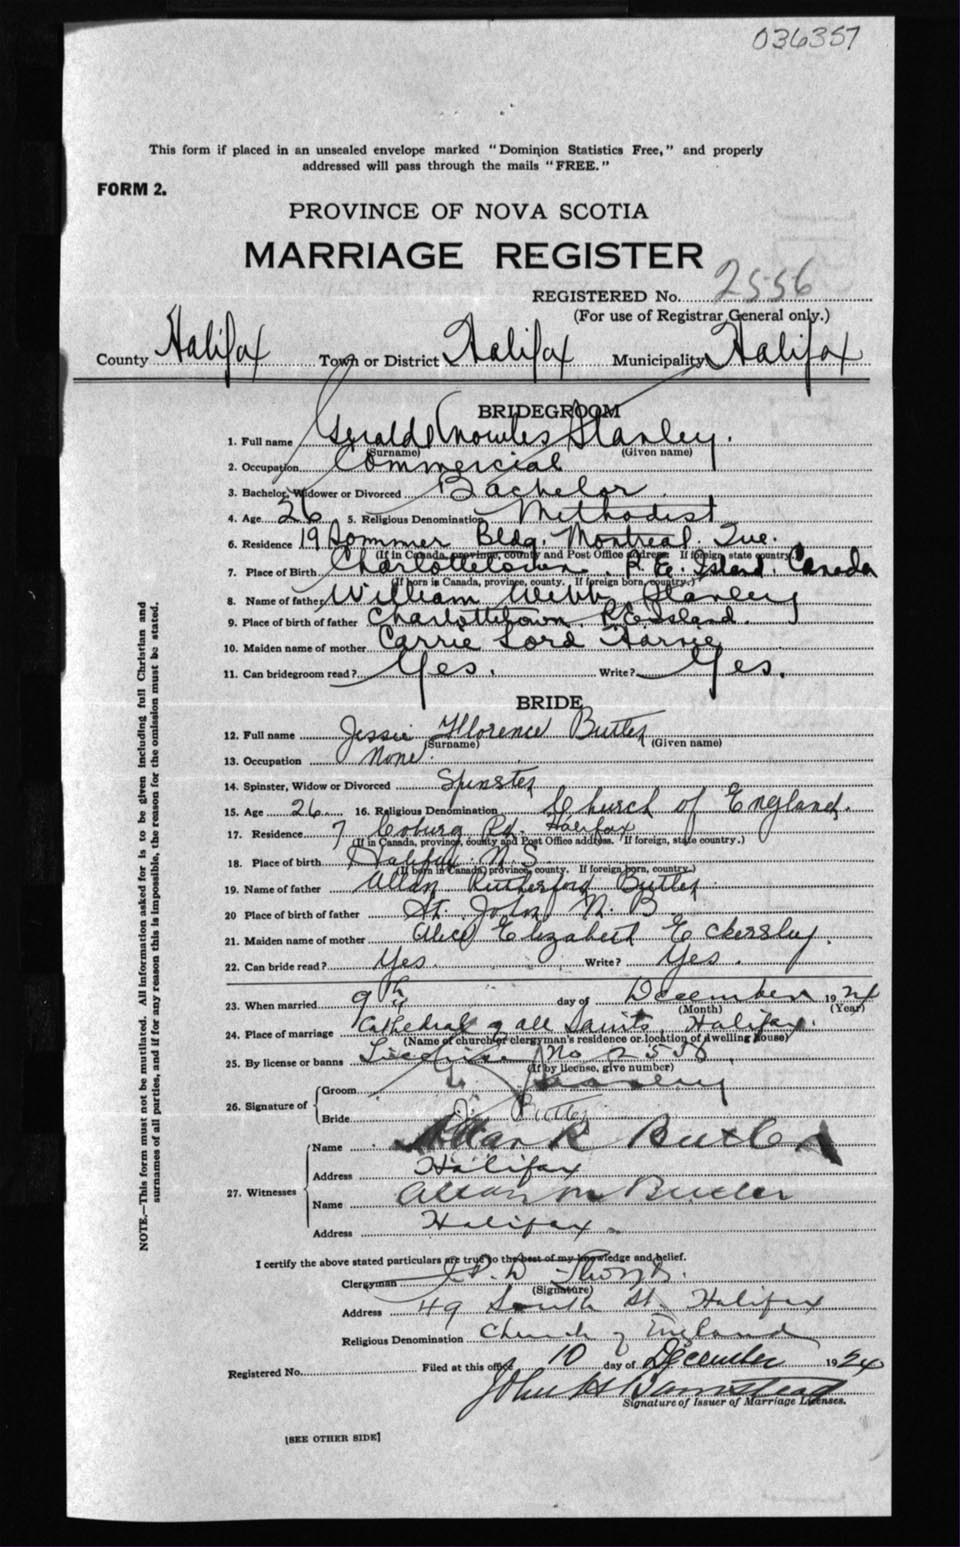 036357
This form if placed in an unsealed envelope marked "Dominion Statistics Free," and properly
addressed will pass through the mails "FREE."
FORM 2.
PROVINCE OF NOVA SCOTIA
MARRIAGE REGISTER
REGISTERED No. 2556
(For use of Registrar General only.)
County Halifax Town or District Halifax Municipality Halifax
BRIDEGROOM
1. Full name Gerald Knowles Stanley.
(Surname) (Given name)
2. Occupation Commercial
3. Bachelor, Widower or Divorced Bachelor
4. Age 26 5. Religious Denomination Methodist
6. Residence 19 Sommer Bldg. Montreal. Que.
(If in Canada, province, county and Post Office address. If foreign, state country.)
7. Place of Birth Charlottetown. P.E. Island. Canada
(If born in Canada, province, county. If foreign born, country.)
8. Name of father William Webb Stanley
9. Place of birth of father Charlottetown. P.E. Island.
10. Maiden name of mother Carrie Lord Harvie
11. Can bridegroom read? Yes. Write? Yes.
BRIDE
12. Full name Jessie Florence Butler
(Surname) (Given name)
13. Occupation None.
14. Spinster, Widow or Divorced Spinster
15. Age 26. 16. Religious Denomination Church of England.
17. Residence 7 Coburg Rd. Halifax
(If in Canada, province, county and Post Office address. If foreign, state country.)
18. Place of birth Halifax N.S.
(If born in Canada, province, county. If foreign born, country.)
19. Name of father Allan Rutherford Butler
20 Place of birth of father St. John N.B
21. Maiden name of mother Alice Elizabeth Eckersley.
22. Can bride read? Yes. Write? Yes.
23. When married 9th day of December 1924
(Month) (Year)
24. Place of marriage Cathedral of all Saints, Halifax.
(Name of church or clergyman's residence or location of dwelling house)
25. By license or banns License. No 2538
(If by license, give number)
26. Signature of Groom Stanley
Bride J. Butler
27. Witnesses Name Allan R Butler
Address Halifax
Name Allan M Butler
Address Halifax.
I certify the above stated particulars are true to the best of my knowledge and belief.
Clergyman
(Signature)
Address 49 South St. Halifax
Religious Denomination Church of England
Registered No. Filed at this office 10 day of December 1924
John H Barnstead
Signature of Issuer of Marriage Licenses.
[SEE OTHER SIDE]
NOTE.—This form must not be mutilated. All information asked for is to be given including full Christian and
surnames of all parties, and if for any reason this is impossible, the reason for the omission must be stated.